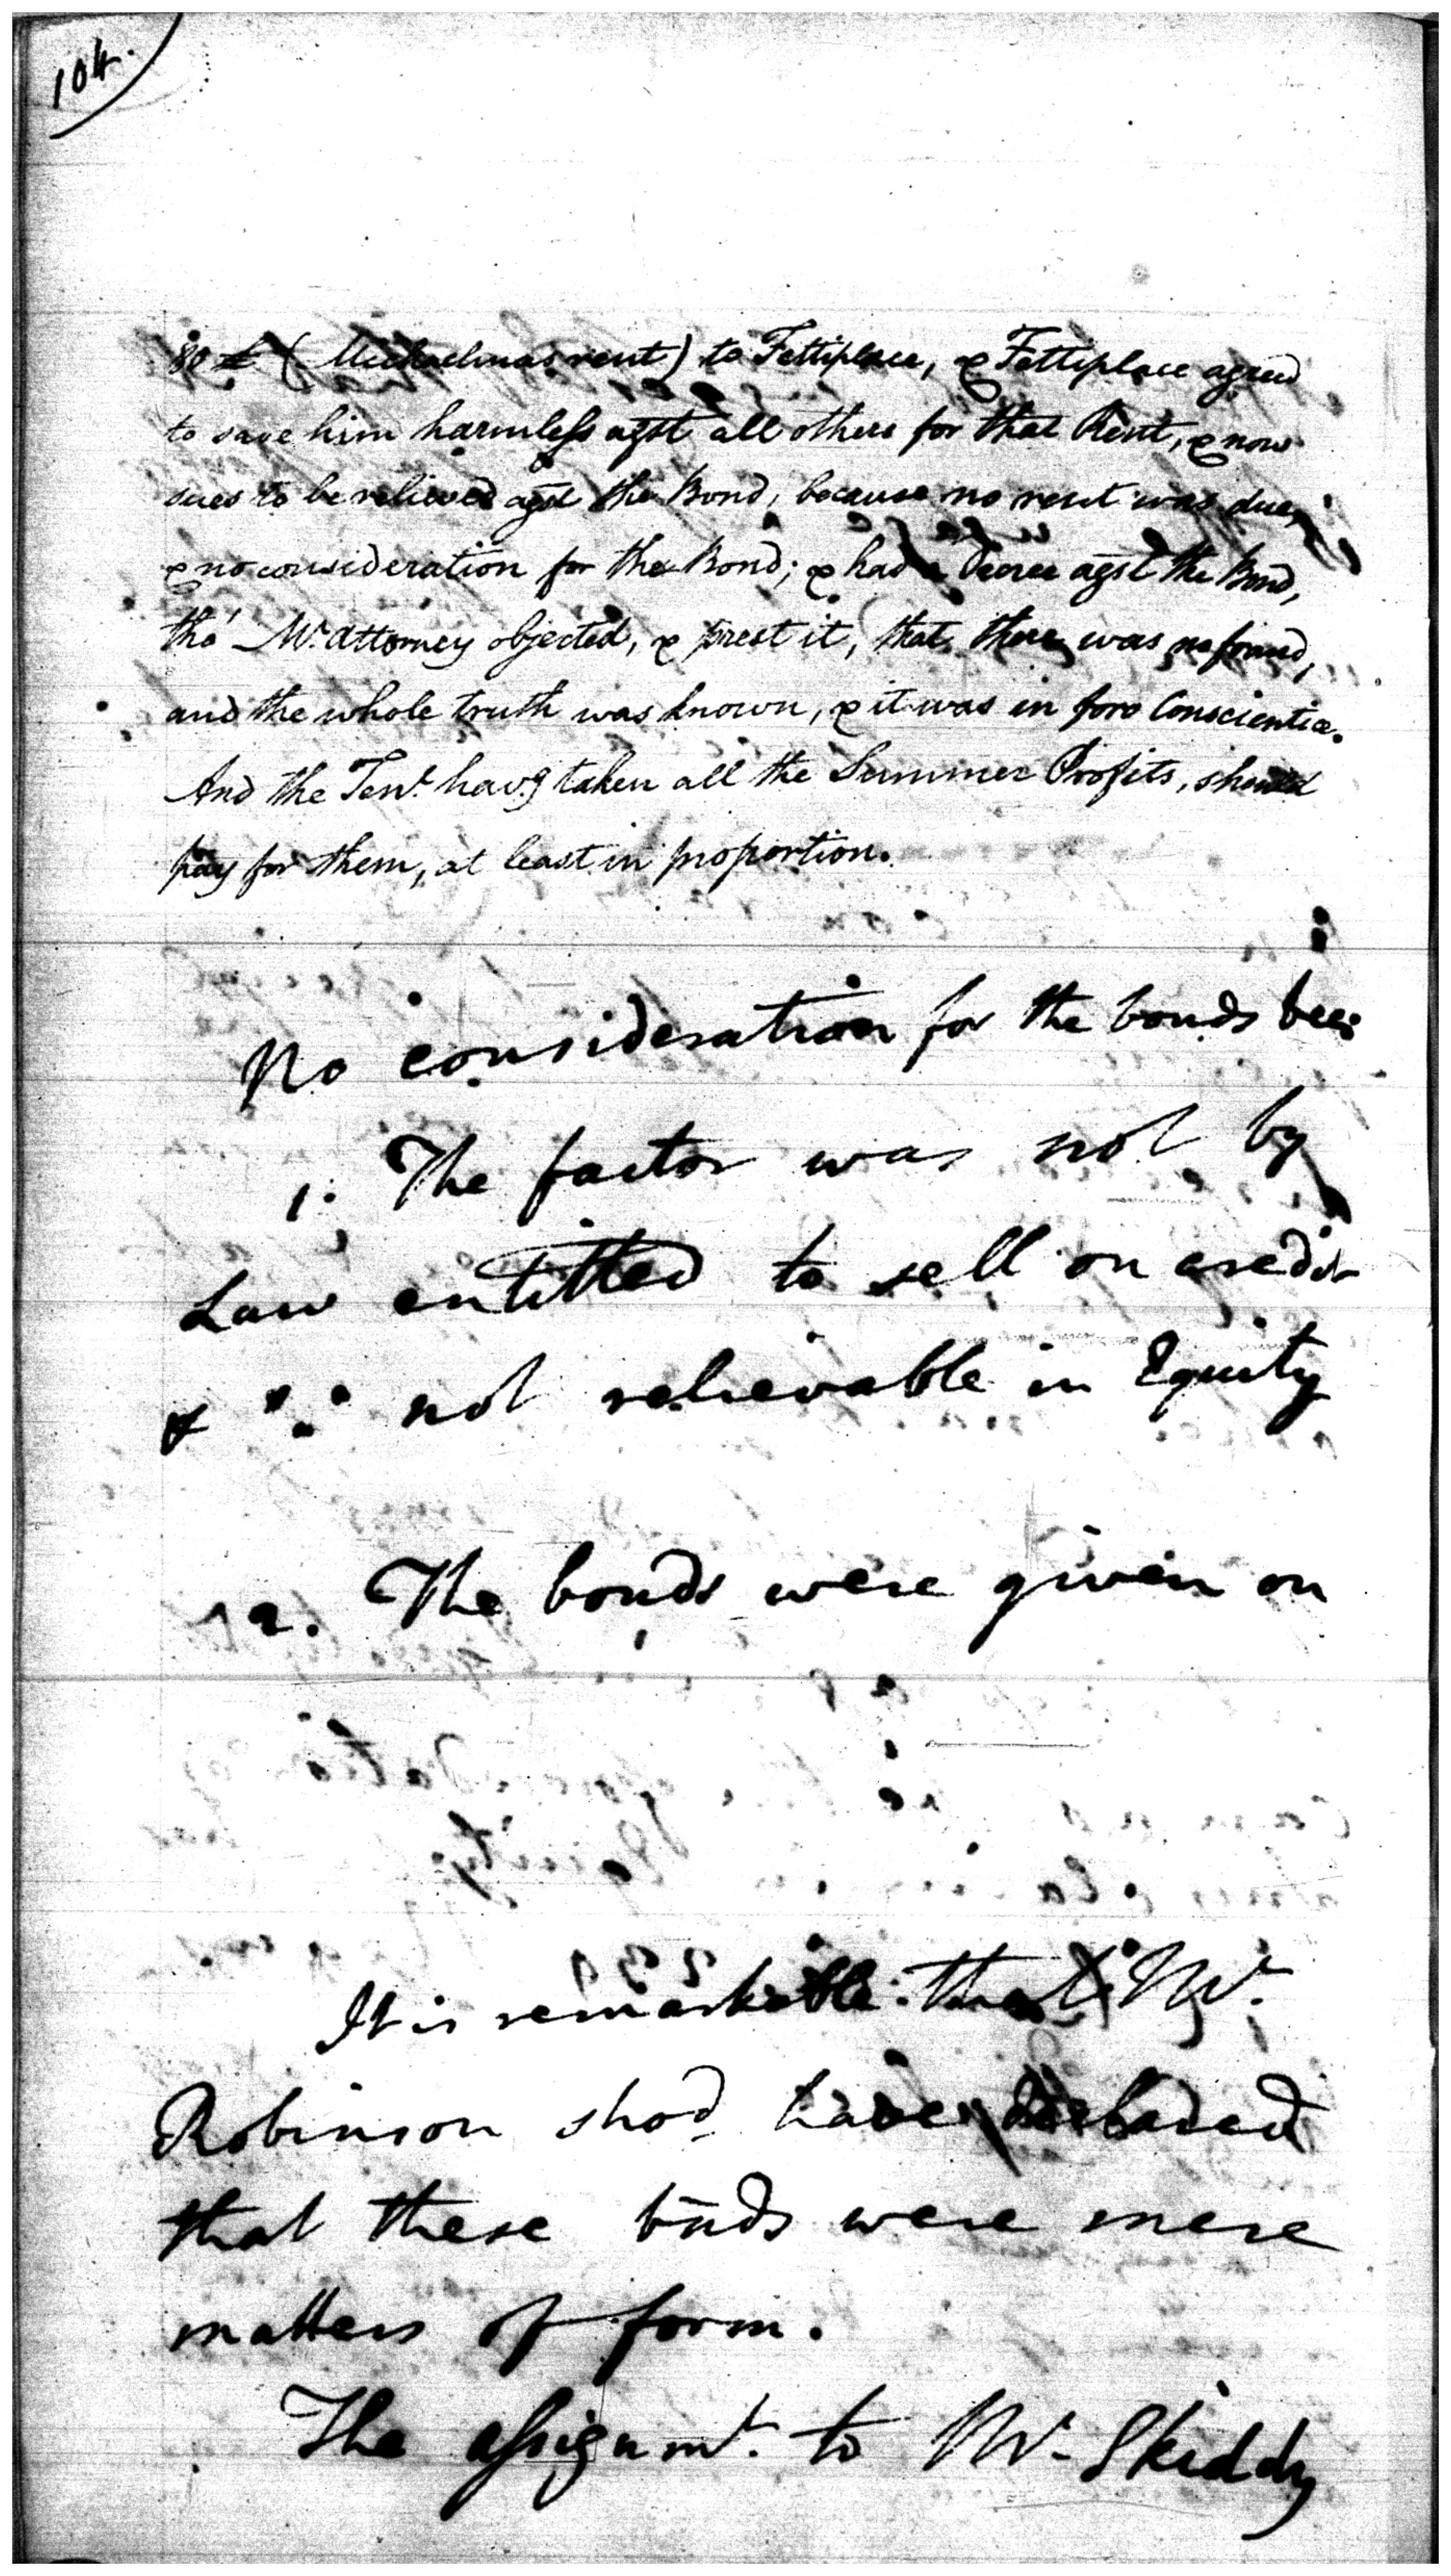 104.
80 £ (Michaelmas rent) to Fettiplace, & Fettiplace agreed
to save him harmless agst all others for that Rent, & now
sues to be relieved agst the Bond, because no rent was due,
& no consideration for the Bond; & had a Decree agst the Bond,
tho' Mr. Attorney objected, & prest it, that there was no fraud,
and the whole truth was known, & it was in foro Conscientiæ.
And the Tent. havg. taken all the Summer Profits, should
pay for them, at least in proportion.
No consideration for the bonds bec:
1. The factor was not by
Law entitled to sell on credit
& ∵ not relievable in Equity
2. The bonds were given on
It is remarkable that Mr.
Robinson shod. have declared
that these bnds were mere
matters of form.
The assignmt. to Mr. Skiddy